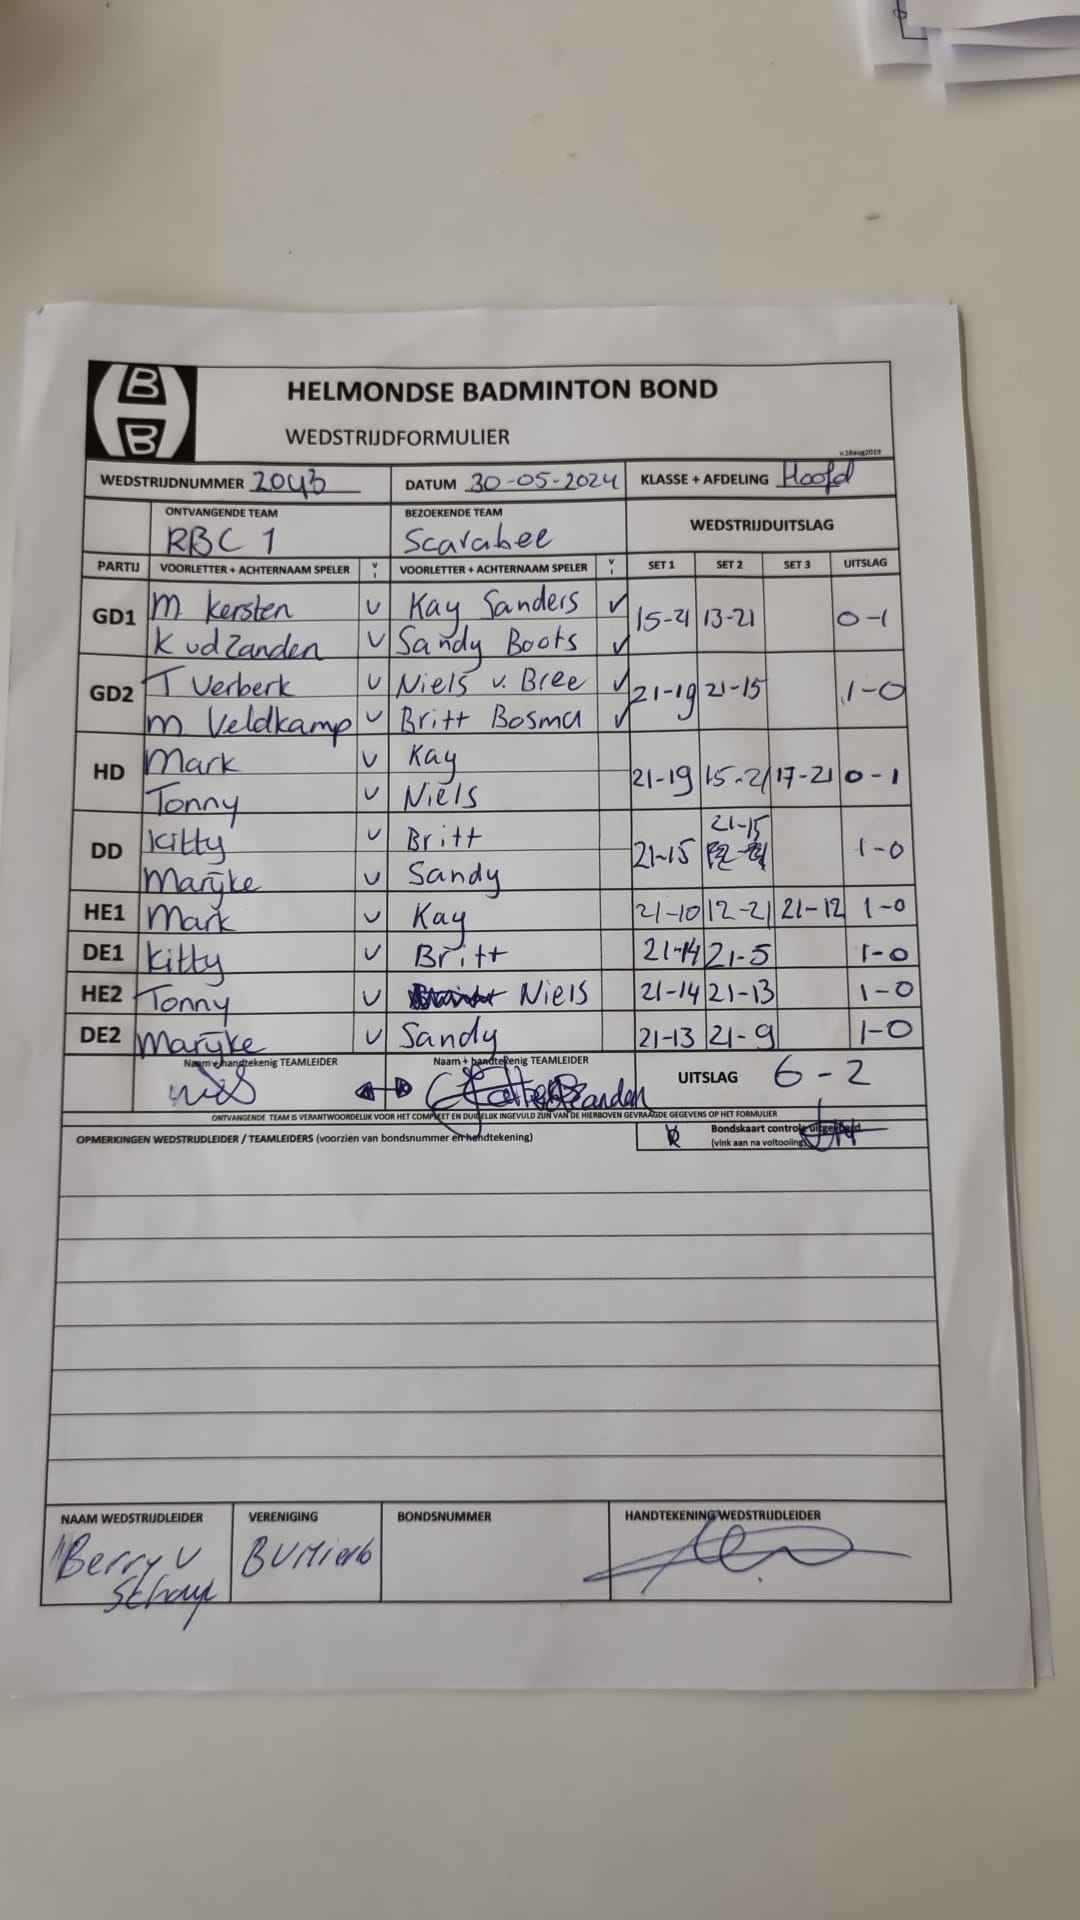 B
B
HELMONDSE BADMINTON BOND
WEDSTRIJDFORMULIER
v.18aug2019
WEDSTRIJDNUMMER 2043 DATUM 30-05-2024 KLASSE + AFDELING Hoofd
ONTVANGENDE TEAM BEZOEKENDE TEAM WEDSTRIJDUITSLAG
RBC 1 Scarabee
PARTIJ VOORLETTER + ACHTERNAAM SPELER V VOORLETTER + ACHTERNAAM SPELER V SET 1 SET 2 SET 3 UITSLAG
GD1 M Kersten v Kay Sanders v 15-21 13-21 0-1
K vd Zanden v Sandy Boots v
GD2 T Verberk v Niels v. Bree v 21-19 21-15 1-0
M Veldkamp v Britt Bosma v
HD Mark v Kay 21-19 15-21 17-21 0-1
Tonny v Niels
DD Kitty v Britt 21-15 21-15 1-0
Marijke v Sandy
HE1 Mark v Kay 21-10 12-21 21-12 1-0
DE1 Kitty v Britt 21-14 21-5 1-0
HE2 Tonny v Niels 21-14 21-13 1-0
DE2 Marijke v Sandy 21-13 21-9 1-0
Naam + handtekenig TEAMLEIDER Naam + handtekenig TEAMLEIDER UITSLAG 6-2
ONTVANGENDE TEAM IS VERANTWOORDELIJK VOOR HET COMPLEET EN DUIDELIJK INGEVULD ZIJN VAN DE HIERBOVEN GEVRAAGDE GEGEVENS OP HET FORMULIER
OPMERKINGEN WEDSTRIJDLEIDER / TEAMLEIDERS (voorzien van bondsnummer en handtekening) Bondskaart controle uitgevoerd
(vink aan na voltooiing)
NAAM WEDSTRIJDLEIDER VERENIGING BONDSNUMMER HANDTEKENING WEDSTRIJDLEIDER
Berry v BV Mierlo